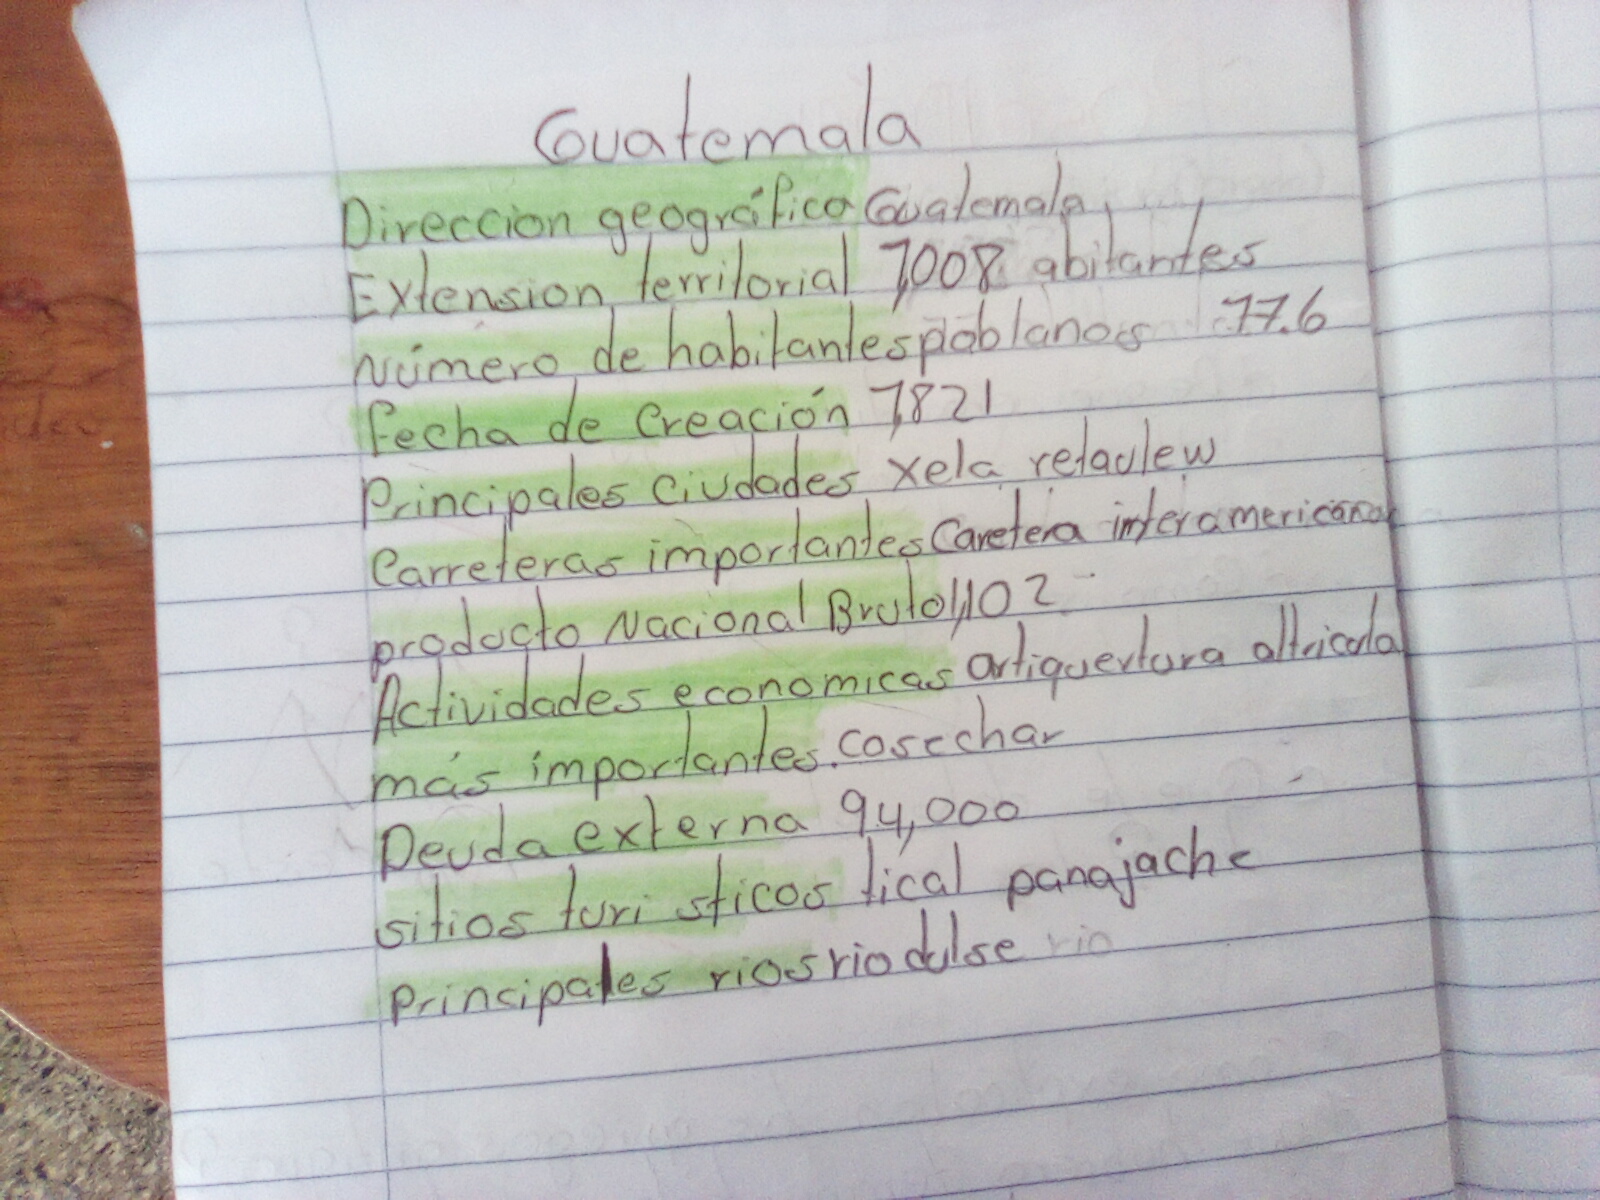 Guatemala
Direccion geográfica Guatemala
Extension territorial 1,008 abitantes
Número de habitantes poblanos 17.6
fecha de creación 1,821
Principales ciudades xela retaulew
Carreteras importantes Caretera interamericana
producto Nacional Bruto 1,102
Actividades economicas artiquertura altricola
más importantes. cosechar
Deuda externa 94,000
sitios turi sticos tical panajache
principales rios rio dulse rio